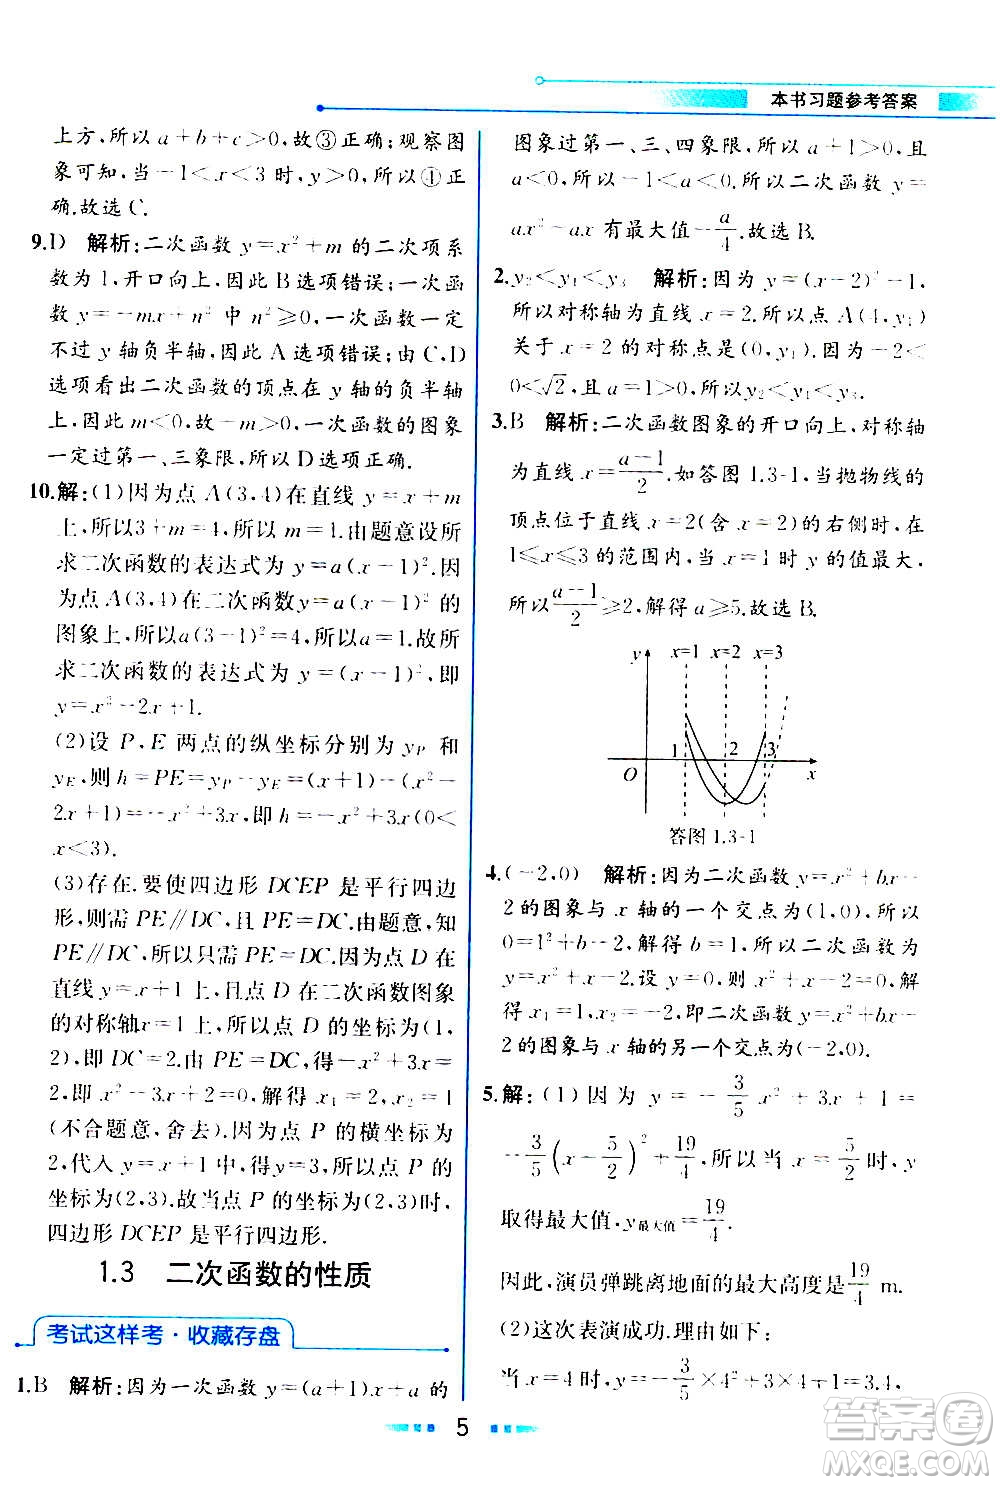 本书习题参考答案
上方,所以 a+b+c>0,故③正确;观察图
象可知,当-1<x<3时,y>0,所以①正
确.故选C.
9.D 解析:二次函数 y=x²+m 的二次项系
数为1,开口向上,因此B选项错误;一次函
数 y=-mx+n² 中 n²≥0,一次函数一定
不过y轴负半轴,因此A选项错误;由C,D
选项看出二次函数的顶点在y轴的负半轴
上,因此m<0,故-m>0,一次函数的图象
一定过第一、三象限,所以D选项正确.
10.解:(1)因为点A(3,4)在直线 y=x+m
上,所以3+m=4,所以 m=1.由题意设所
求二次函数的表达式为 y=a(x-1)².因
为点A(3,4)在二次函数y=a(x-1)²的
图象上,所以a(3-1)²=4,所以a=1.故所
求二次函数的表达式为 y=(x-1)²,即
y=x²-2x+1.
(2)设 P,E 两点的纵坐标分别为 yP 和
yE,则h=PE=yP-yE=(x+1)-(x²-
2x+1)=-x²+3x,即 h=-x²+3x(0<
x<3).
(3)存在.要使四边形DCEP是平行四边
形,则需 PE∥DC,PE=DC.由题意,知
PE∥DC,所以只需PE=DC.因为点D在
直线 y=x+1上,且点D在二次函数图象
的对称轴x=1上,所以点D的坐标为(1,
2),即DC=2.由PE=DC,得-x²+3x=
2,即 x²-3x+2=0,解得 x₁=2,x₂=1
(不合题意,舍去).因为点 P 的横坐标为
2,代入 y=x+1中,得y=3,所以点 P 的
坐标为(2,3).故当点 P 的坐标为(2,3)时,
四边形DCEP是平行四边形.
1.3 二次函数的性质
考试这样考·收藏存盘
1.B 解析:因为一次函数 y=(a+1)x+a 的
图象过第一、三、四象限,所以a+1>0,且
a<0.所以-1<a<0.所以二次函数 y=
ax²-ax 有最大值-a/4.故选B.
2.y₂<y₁<y₃ 解析:因为 y=(x-2)²-1,
所以对称轴为直线 x=2.所以点A(4,y₁)
关于x=2的对称点是(0,y₁).因为-2<
0<√2,且a=1>0,所以y₂<y₁<y₃.
3.B 解析:二次函数图象的开口向上,对称轴
为直线 x=(a-1)/2.如答图1.3-1,当抛物线的
顶点位于直线x=2(含x=2)的右侧时,在
1≤x≤3的范围内,当 x=1时y的值最大,
所以(a-1)/2≥2,解得 a≥5.故选B.
y x=1 x=2 x=3
1 2 3
O x
答图1.3-1
4.(-2,0) 解析:因为二次函数 y=x²+bx-
2的图象与x轴的一个交点为(1,0),所以
0=1²+b-2,解得b=1,所以二次函数为
y=x²+x-2.设 y=0,则 x²+x-2=0,解
得 x₁=1,x₂=-2,即二次函数 y=x²+bx-
2的图象与x轴的另一个交点为(-2,0).
5.解:(1)因为 y=-3/5x²+3x+1=
-3/5(x-5/2)²+19/4,所以当 x=5/2时,y
取得最大值,y最大值=19/4.
因此,演员弹跳离地面的最大高度是19/4 m.
(2)这次表演成功.理由如下:
当 x=4时,y=-3/5×4²+3×4+1=3.4,
5
答案圈
MXQE.COM